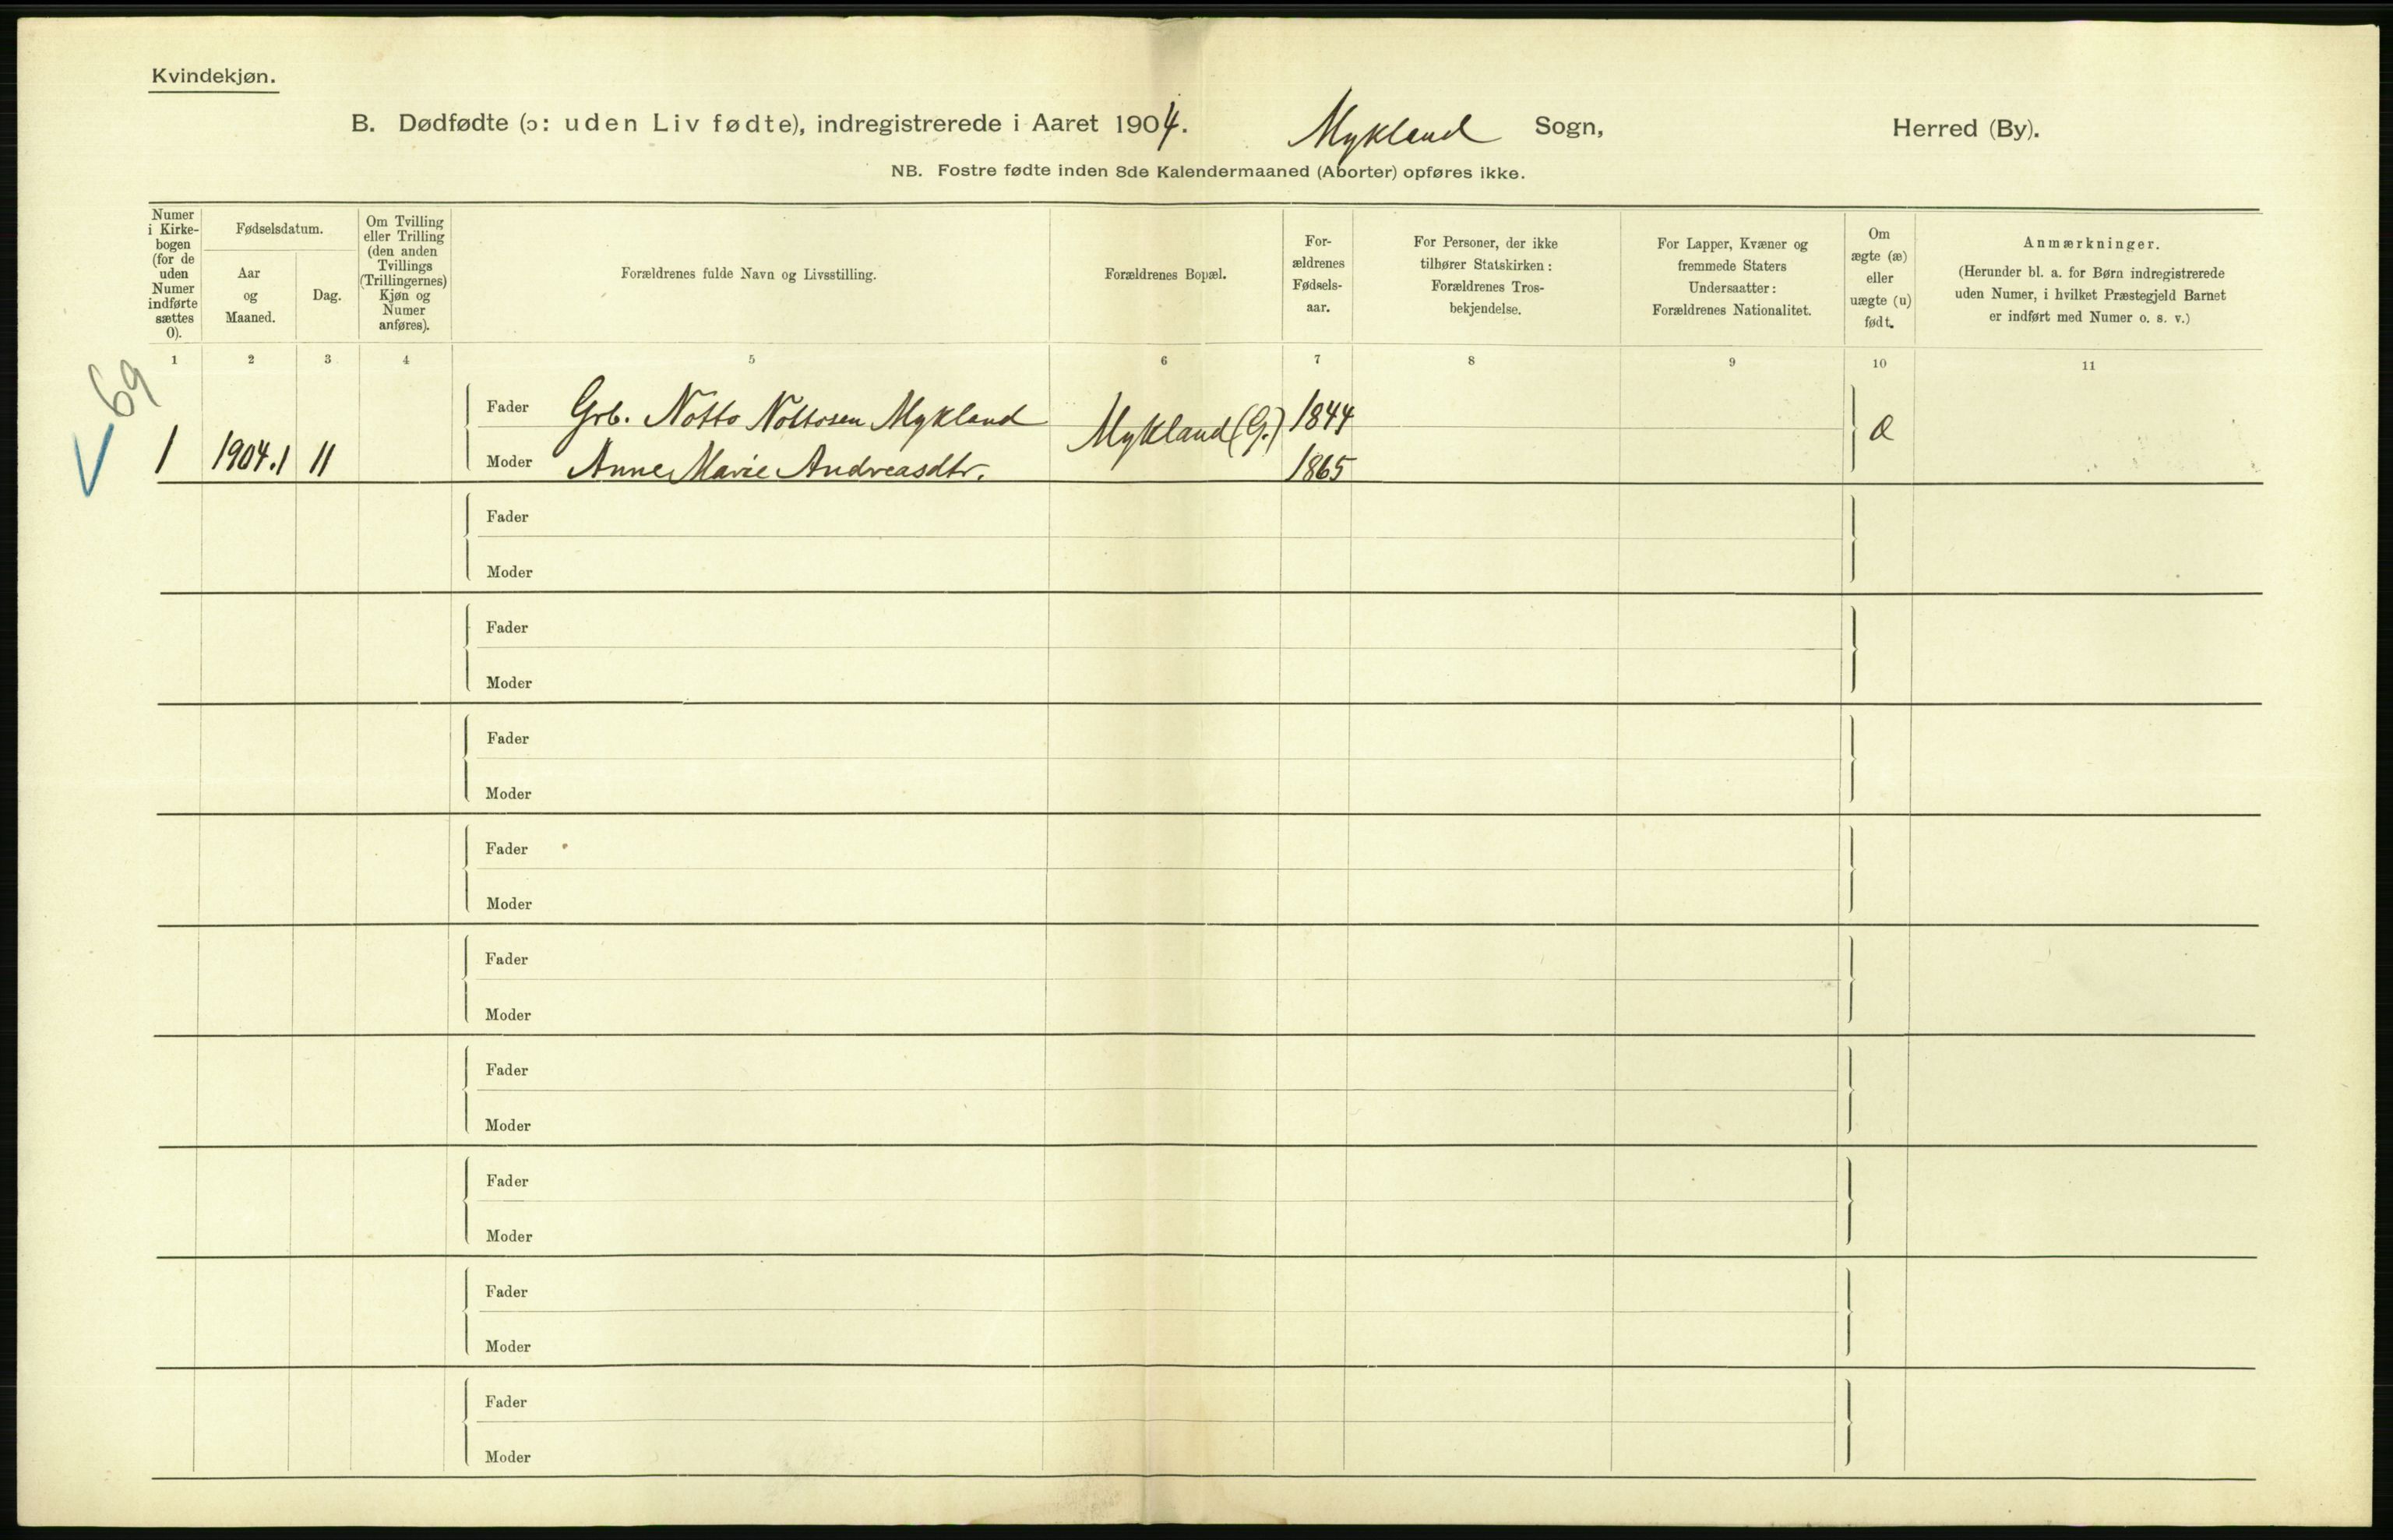 Kvindekjøn.
B. Dødfødte (ɔ: uden Liv fødte), indregistrerede i Aaret 1904. Mykland Sogn, Herred (By).
NB. Fostre fødte inden 8de Kalendermaaned (Aborter) opføres ikke.
Numer
i Kirke-
bogen
(for de
uden
Numer
indførte
sættes
0).
Fødselsdatum.
Aar
og
Maaned.
Dag.
Om Tvilling
eller Trilling
(den anden
Tvillings
(Trillingernes)
Kjøn og
Numer
anføres).
Forældrenes fulde Navn og Livsstilling.
Forældrenes Bopæl.
For-
ældrenes
Fødsels-
aar.
For Personer, der ikke
tilhører Statskirken:
Forældrenes Tros-
bekjendelse.
For Lapper, Kvæner og
fremmede Staters
Undersaatter:
Forældrenes Nationalitet.
Om
ægte (æ)
eller
uægte (u)
født.
Anmærkninger.
(Herunder bl. a. for Børn indregistrerede
uden Numer, i hvilket Præstegjeld Barnet
er indført med Numer o. s. v.)
1 2 3 4 5 6 7 8 9 10 11
69
Fader Grb. Notto Nottosen Mykland 1844
1 1904.1 11 Mykland (G.) æ
Moder Anne Marie Andreasdtr. 1865
Fader
Moder
Fader
Moder
Fader
Moder
Fader
Moder
Fader
Moder
Fader
Moder
Fader
Moder
Fader
Moder
Fader
Moder